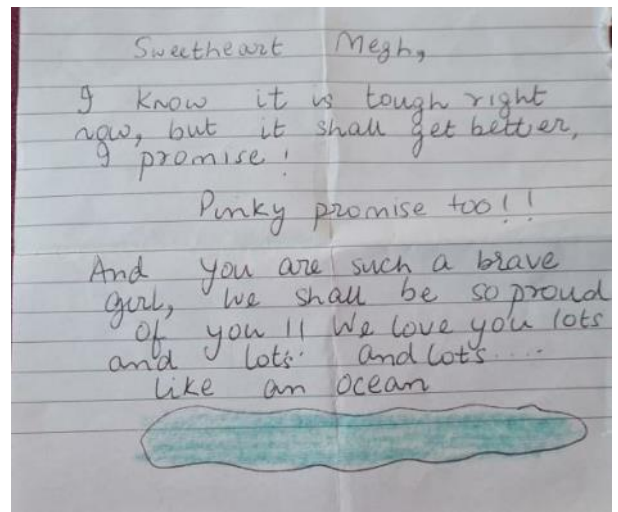 Sweetheart Megh,
I know it is tough right
now, but it shall get better,
I promise!
Pinky promise too!!
And you are such a brave
girl, we shall be so proud
of you!! We love you lots
and lots. and lots....
like an ocean